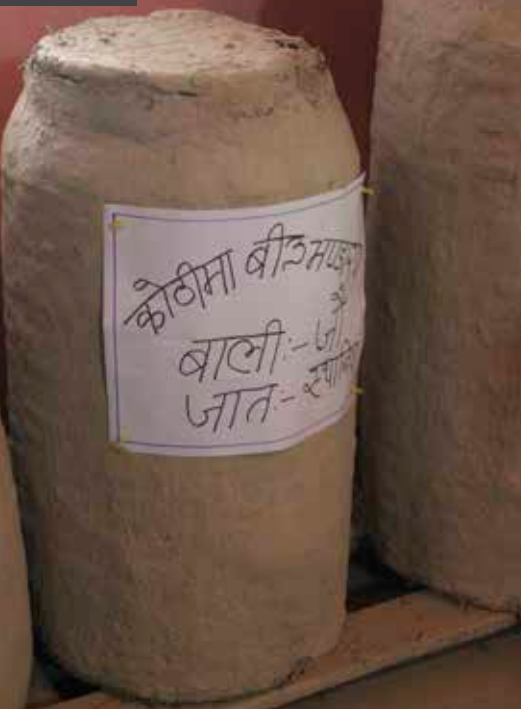 कोठीमा बीउ भण्डारण
बाली:- जौ
जात:- स्थानिय